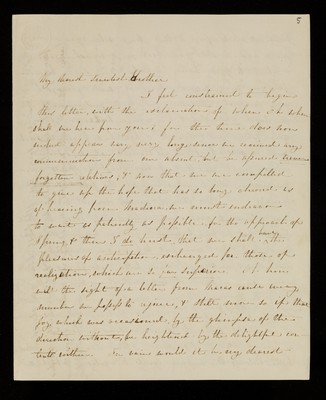 5
My dear Brother
I feel constrained to begin
this letter, with the exclamation of when Oh when
shall we hear from you & for the time does now
indeed appear very very long, since we received any
communication from our absent but be assured never
forgotten relatives, & now that we are compelled
to give up the hope that has so long cheered us
of hearing from we must endeavor
to wait as patiently as possible for the approach of
Spring, & then I do trust, that we shall have the
pleasures of anticipation exchanged for those of
realization, which are so far superior
will the sight of a letter from cause every
member to rejoice, & still more so if that
joy which was occasioned by the glimpse of the
direction without, be heightened by the delightful con
tents within. In vain would it be, my dearest